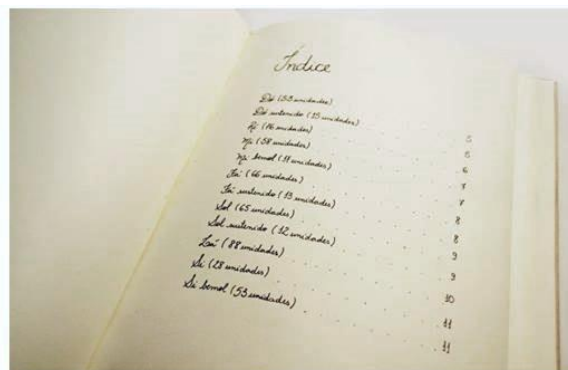 Índice
Dó unidades) 5
Dó sustenido (15 unidades) 5
Ré unidades) 6
Mi (58 unidades) 7
Mi bemol (11 unidades) 7
Fá (66 unidades) 8
Fá sustenido (13 unidades) 8
Sol (65 unidades) 9
Sol sustenido (12 unidades) 9
Lá (88 unidades) 10
Si (28 unidades) 11
Si bemol (53 unidades) 11